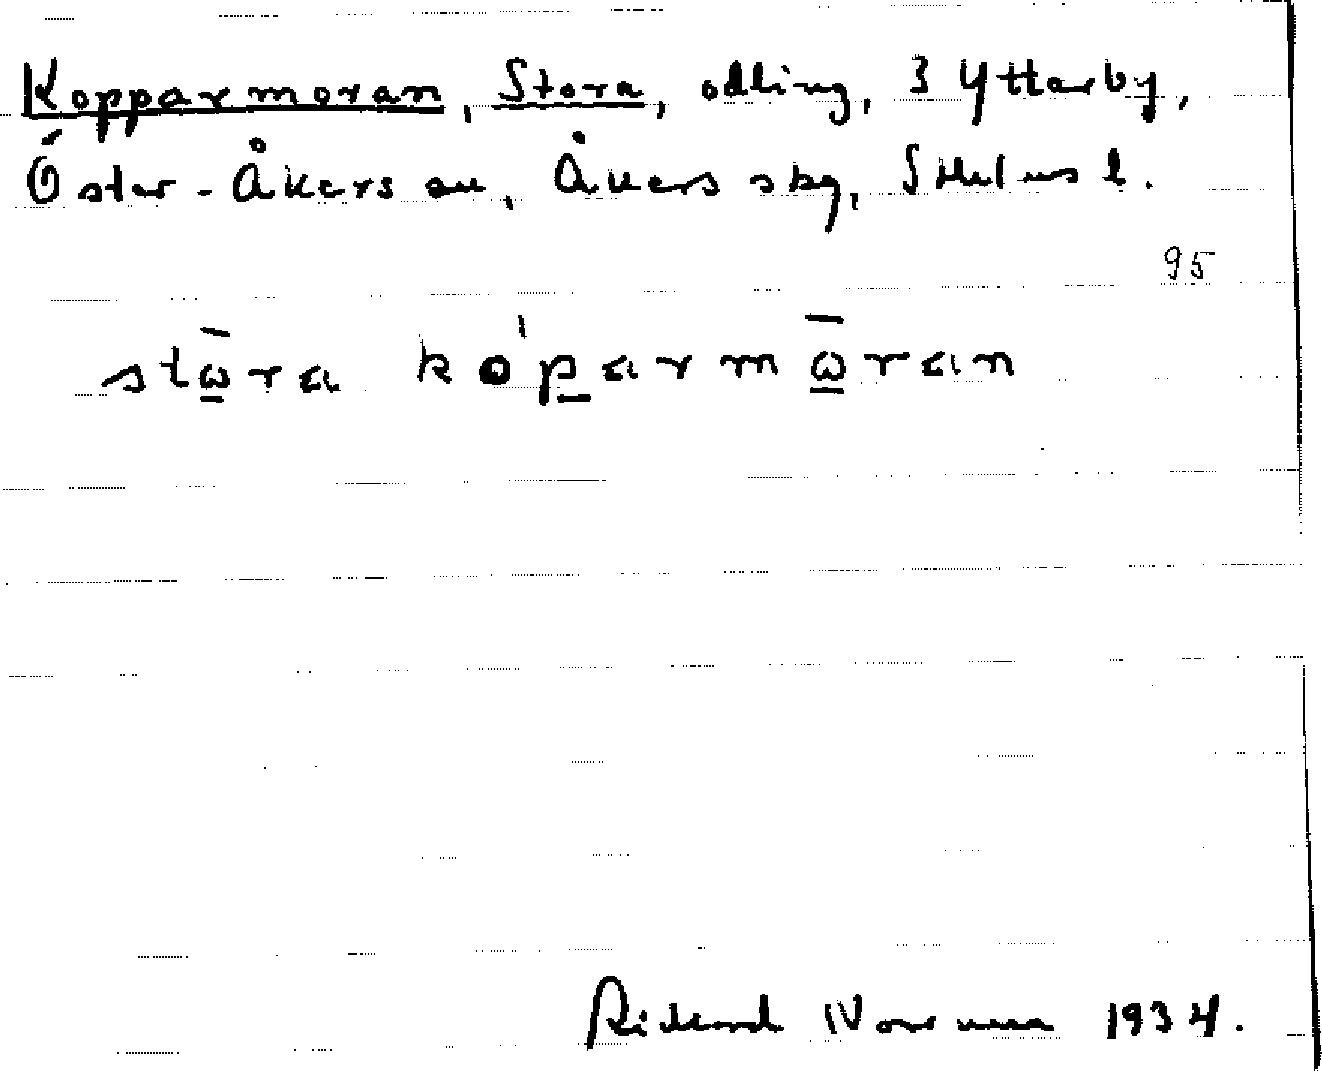 Kopparmoran, Stora, odling, 3 Ytterby,
Öster-Åkers sn, Åkers skg, Sthlms l.
95
stω̲̄ra ko̍p̲armω̲̄ran
Rickard 1934.